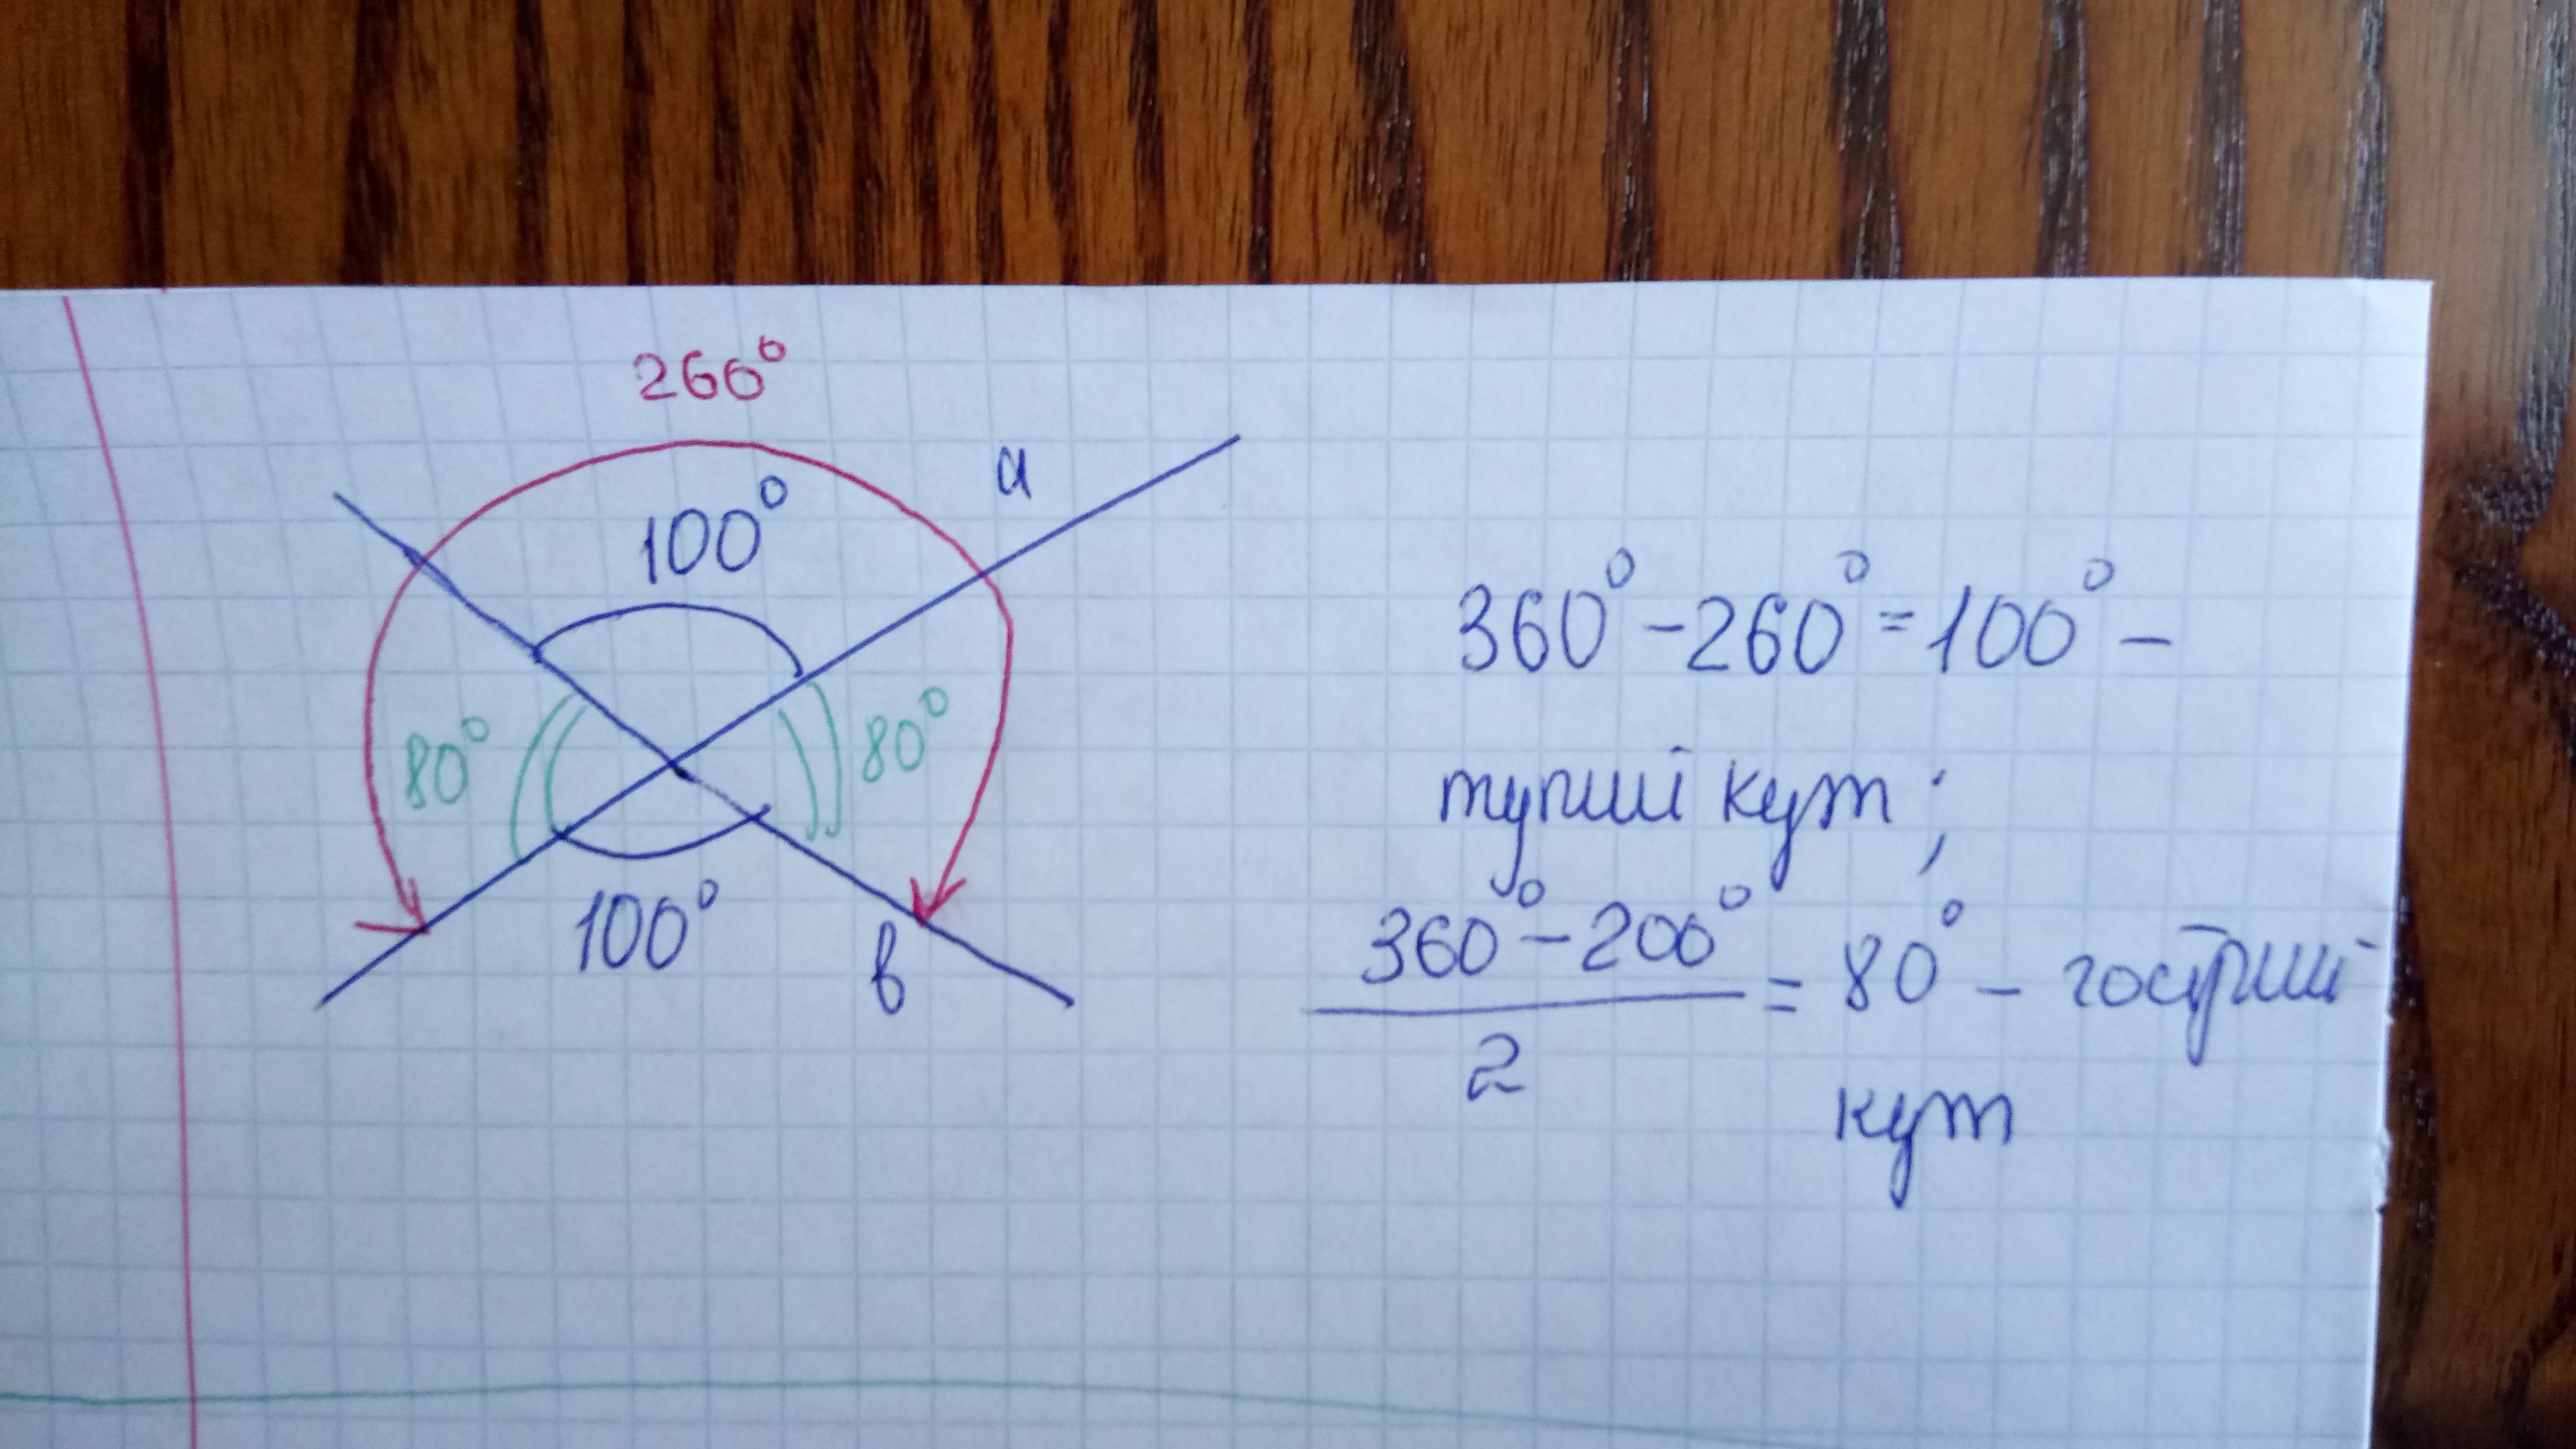 260°
100°
a
80°
80°
100°
в
360° - 260° = 100° -
тупий кут ;
360° - 200°
2
= 80° - гострий
кут